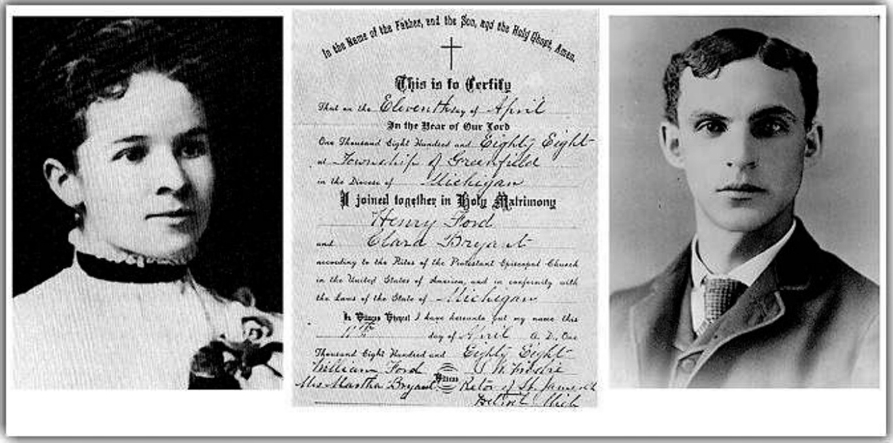 In the Name of the Father, and the Son, and the Holy Ghost, Amen.
This is to Certify
That on the Eleventh day of April
In the Year of Our Lord
One Thousand Eight Hundred and Eighty Eight
at Township of Greenfield
in the Diocese of Michigan
I joined together in Holy Matrimony
Henry Ford
and Clara Bryant
according to the Rites of the Protestant Episcopal Church
in the United States of America, and in conformity with
the Laws of the State of Michigan
In Witness Whereof I have hereunto put my name this
11th day of April A. D., One
Thousand Eight Hundred and Eighty Eight
William Ford
Mrs Martha Bryant Witness Rector of St. James Ch
Detroit Mich